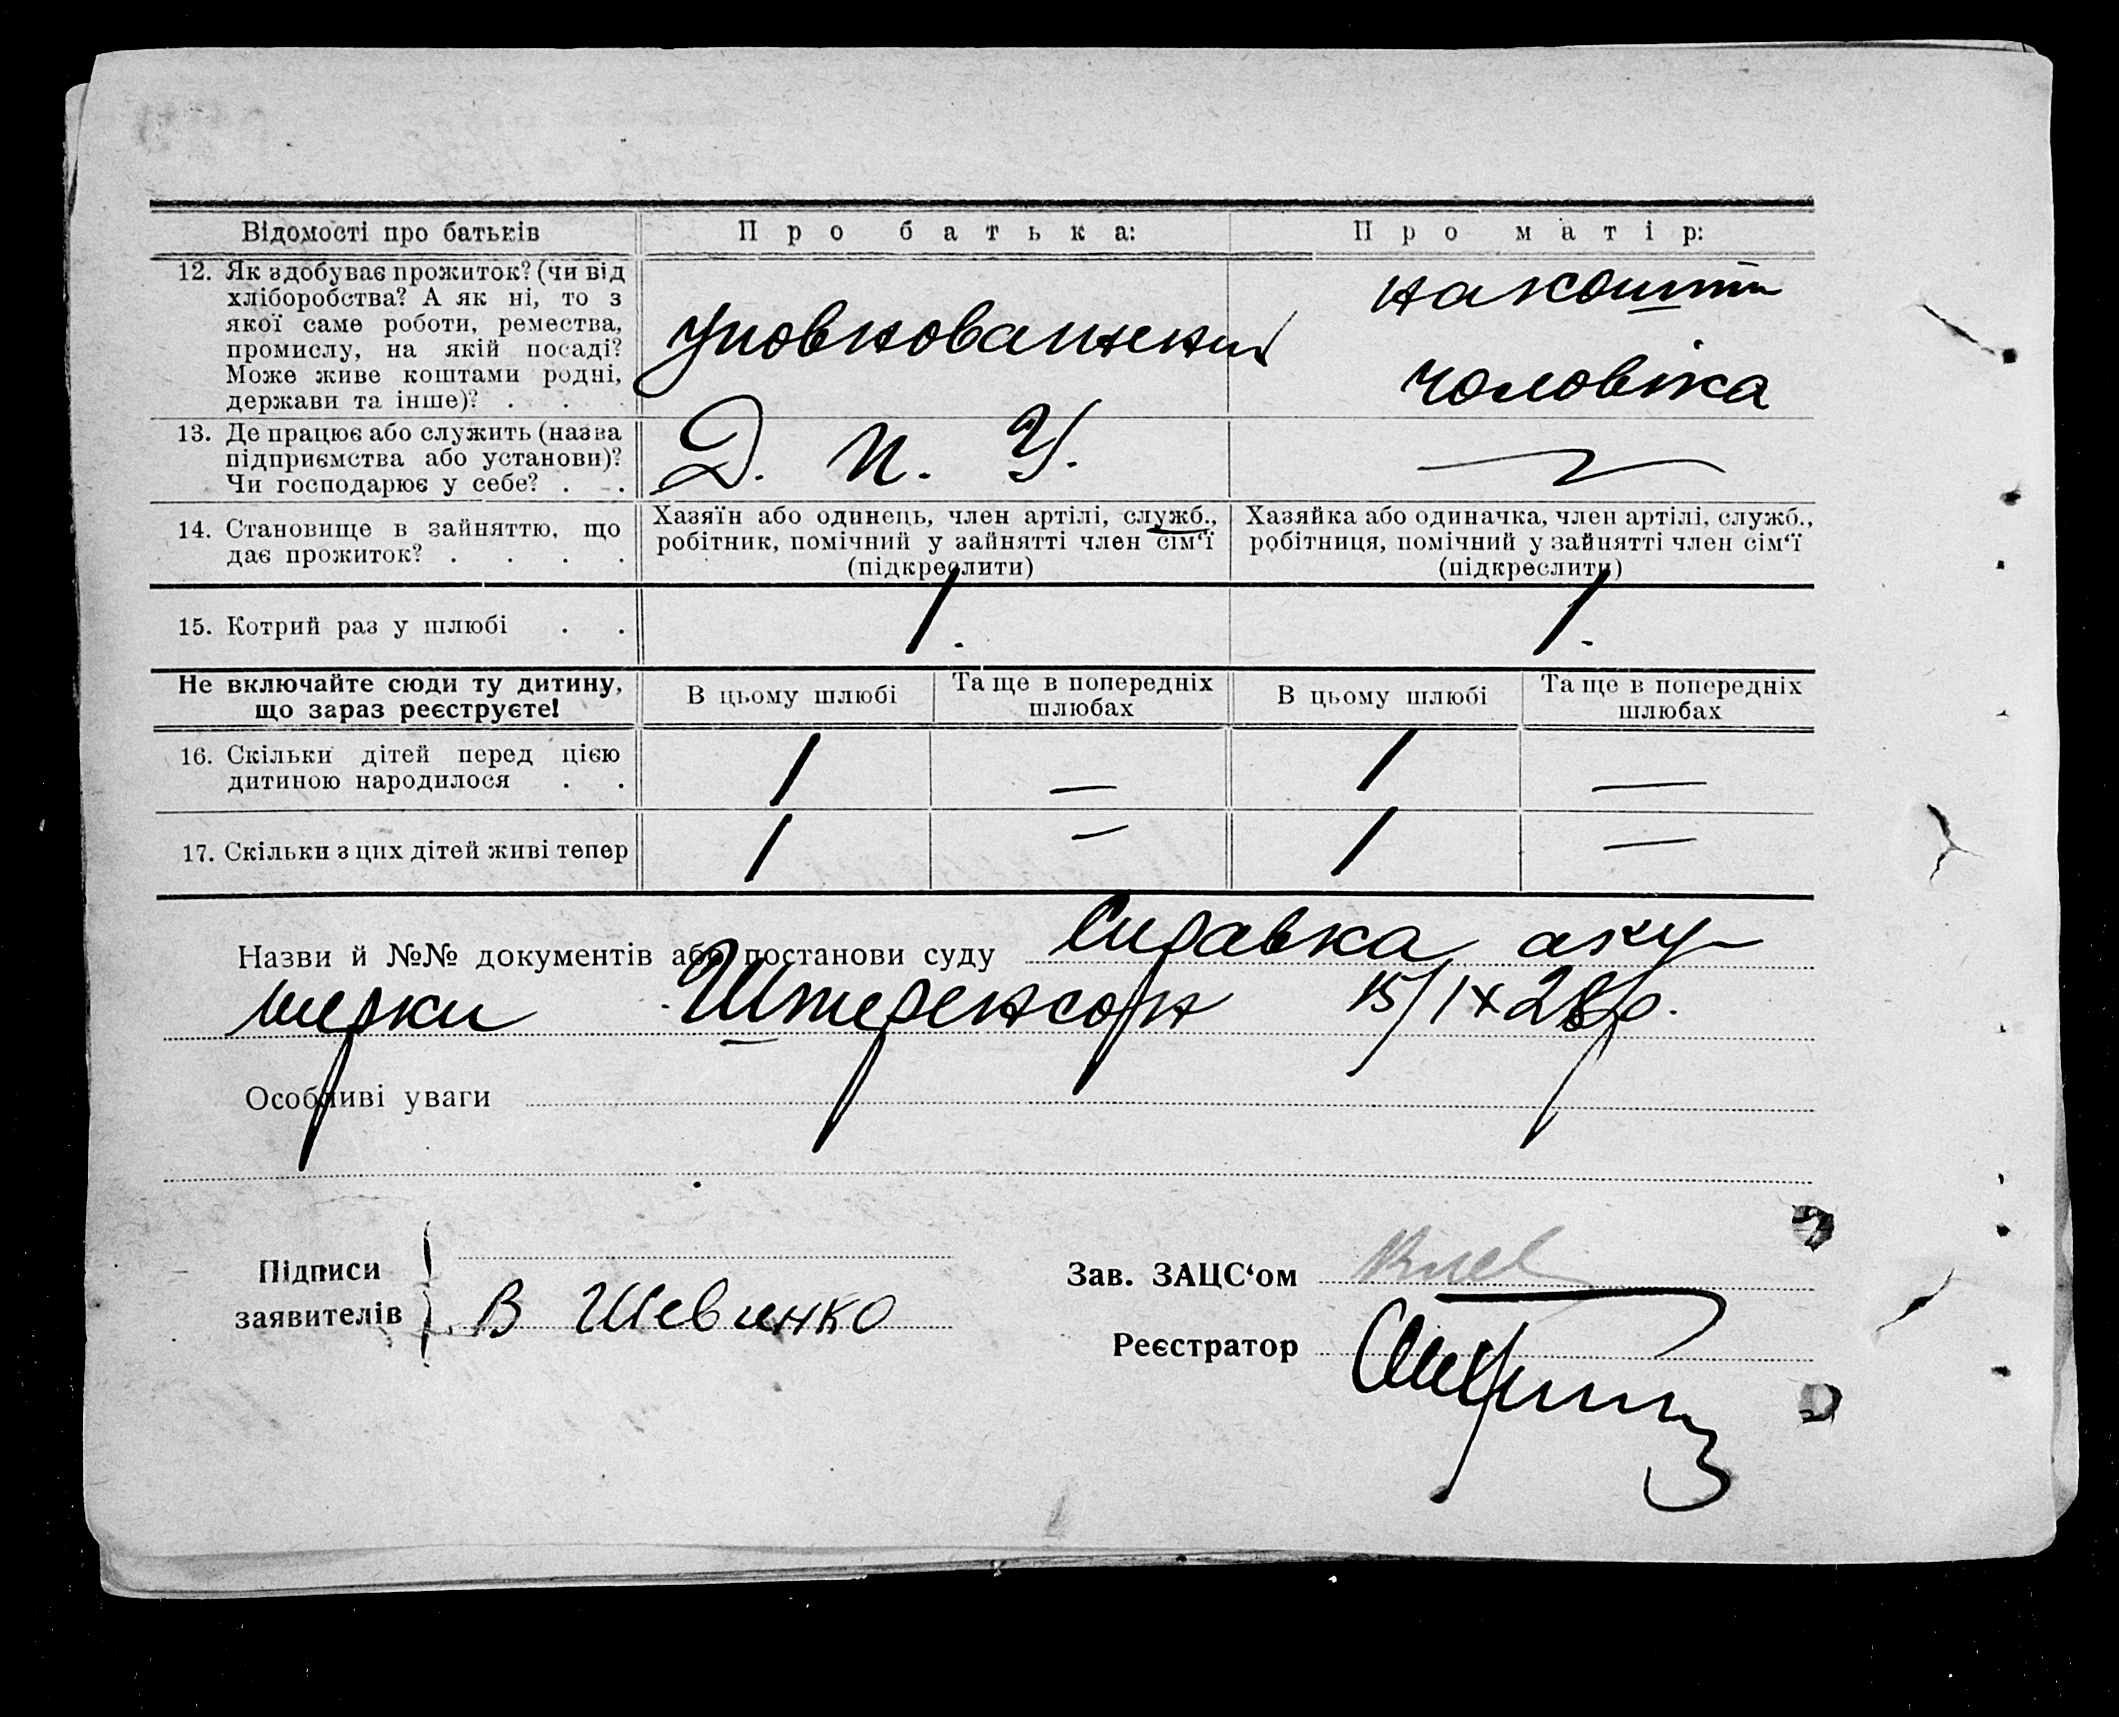 Відомості про батьків
Про батька:
Про матір:
12. Як здобуває прожиток? (чи від
хліборобства? А як ні, то з
якої саме роботи, ремества,
промислу, на якій посаді?
Може живе коштами родні,
держави та інше)? . . .
уповноваженний
на кошти
чоловіка
13. Де працює або служить (назва
підприємства або установи)?
Чи господарює у себе? . .
Д. П. У.
—
14. Становище в зайняттю, що
дає прожиток? . . . .
Хазяїн або одинець, член артілі, служб.,
робітник, помічний у зайнятті член сім'ї
(підкреслити)
Хазяйка або одиначка, член артілі, служб.,
робітниця, помічний у зайнятті член сім'ї
(підкреслити)
15. Котрий раз у шлюбі . .
1.
1.
Не включайте сюди ту дитину,
що зараз реєструєте!
В цьому шлюбі
Та ще в попередніх
шлюбах
В цьому шлюбі
Та ще в попередніх
шлюбах
16. Скільки дітей перед цією
дитиною народилося . .
1
—
1
—
17. Скільки з цих дітей живі тепер
1
—
1
—
Назви й №№ документів або постанови суду Справка аку-
шерки Штеренсон 15/IX 28 р.
Особливі уваги
Підписи
заявителів
В Шевченко
Зав. ЗАЦС'ом
Реєстратор